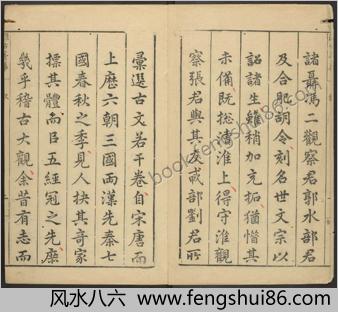 諸聶馮二觀察君郭水部君
及合肥胡令刻名世文宗以
詔諸生雖稍加充拓猶惜其
未備既総漕淮上得守淮觀
察張君與其友戒部劉君所
彙選古文若干卷自宋唐而
上歷六朝三國両漢先秦七
國春秋之季見人抉其奇家
標其體而𦣱五經冠之先糜
幾乎稽古大觀余昔有志而
bookfengshui86.com
风水八六 www.fengshui86.com